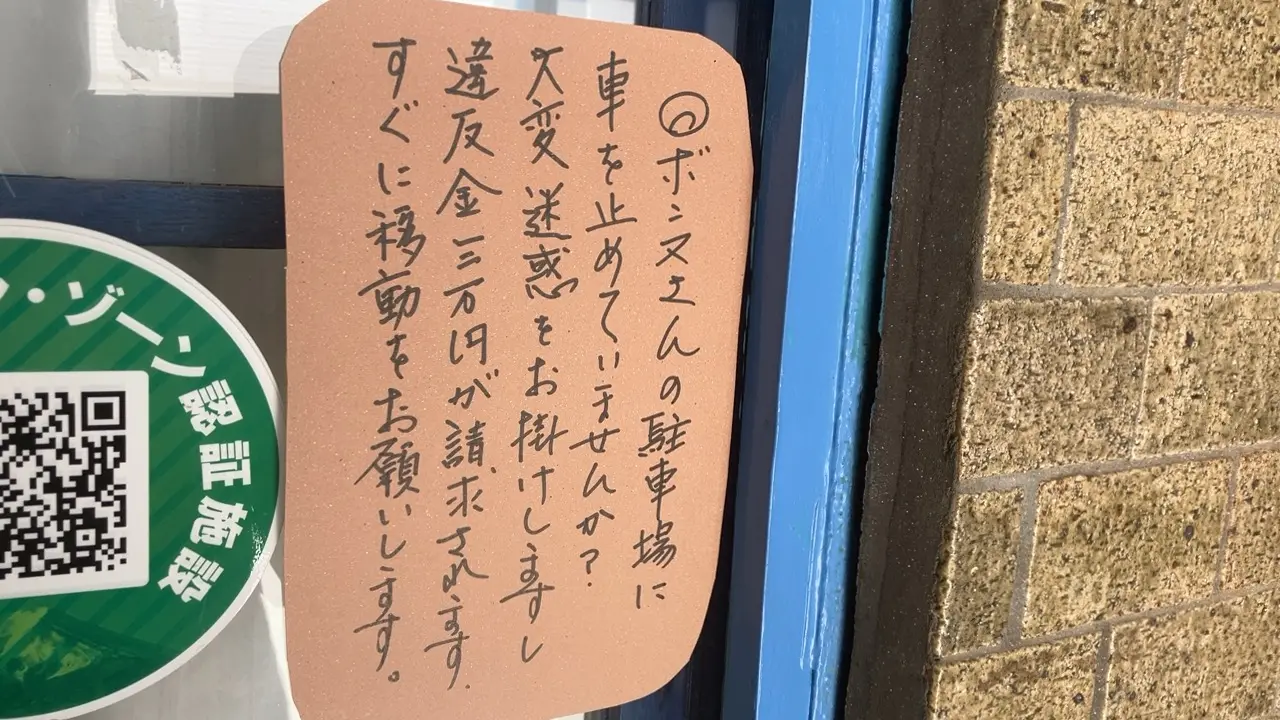 ◎ボンヌさんの駐車場に
車を止めていませんか?
大変迷惑をお掛けしますし
違反金三万円が請求されます.
すぐに移動をお願いします。
・ゾーン認証施設